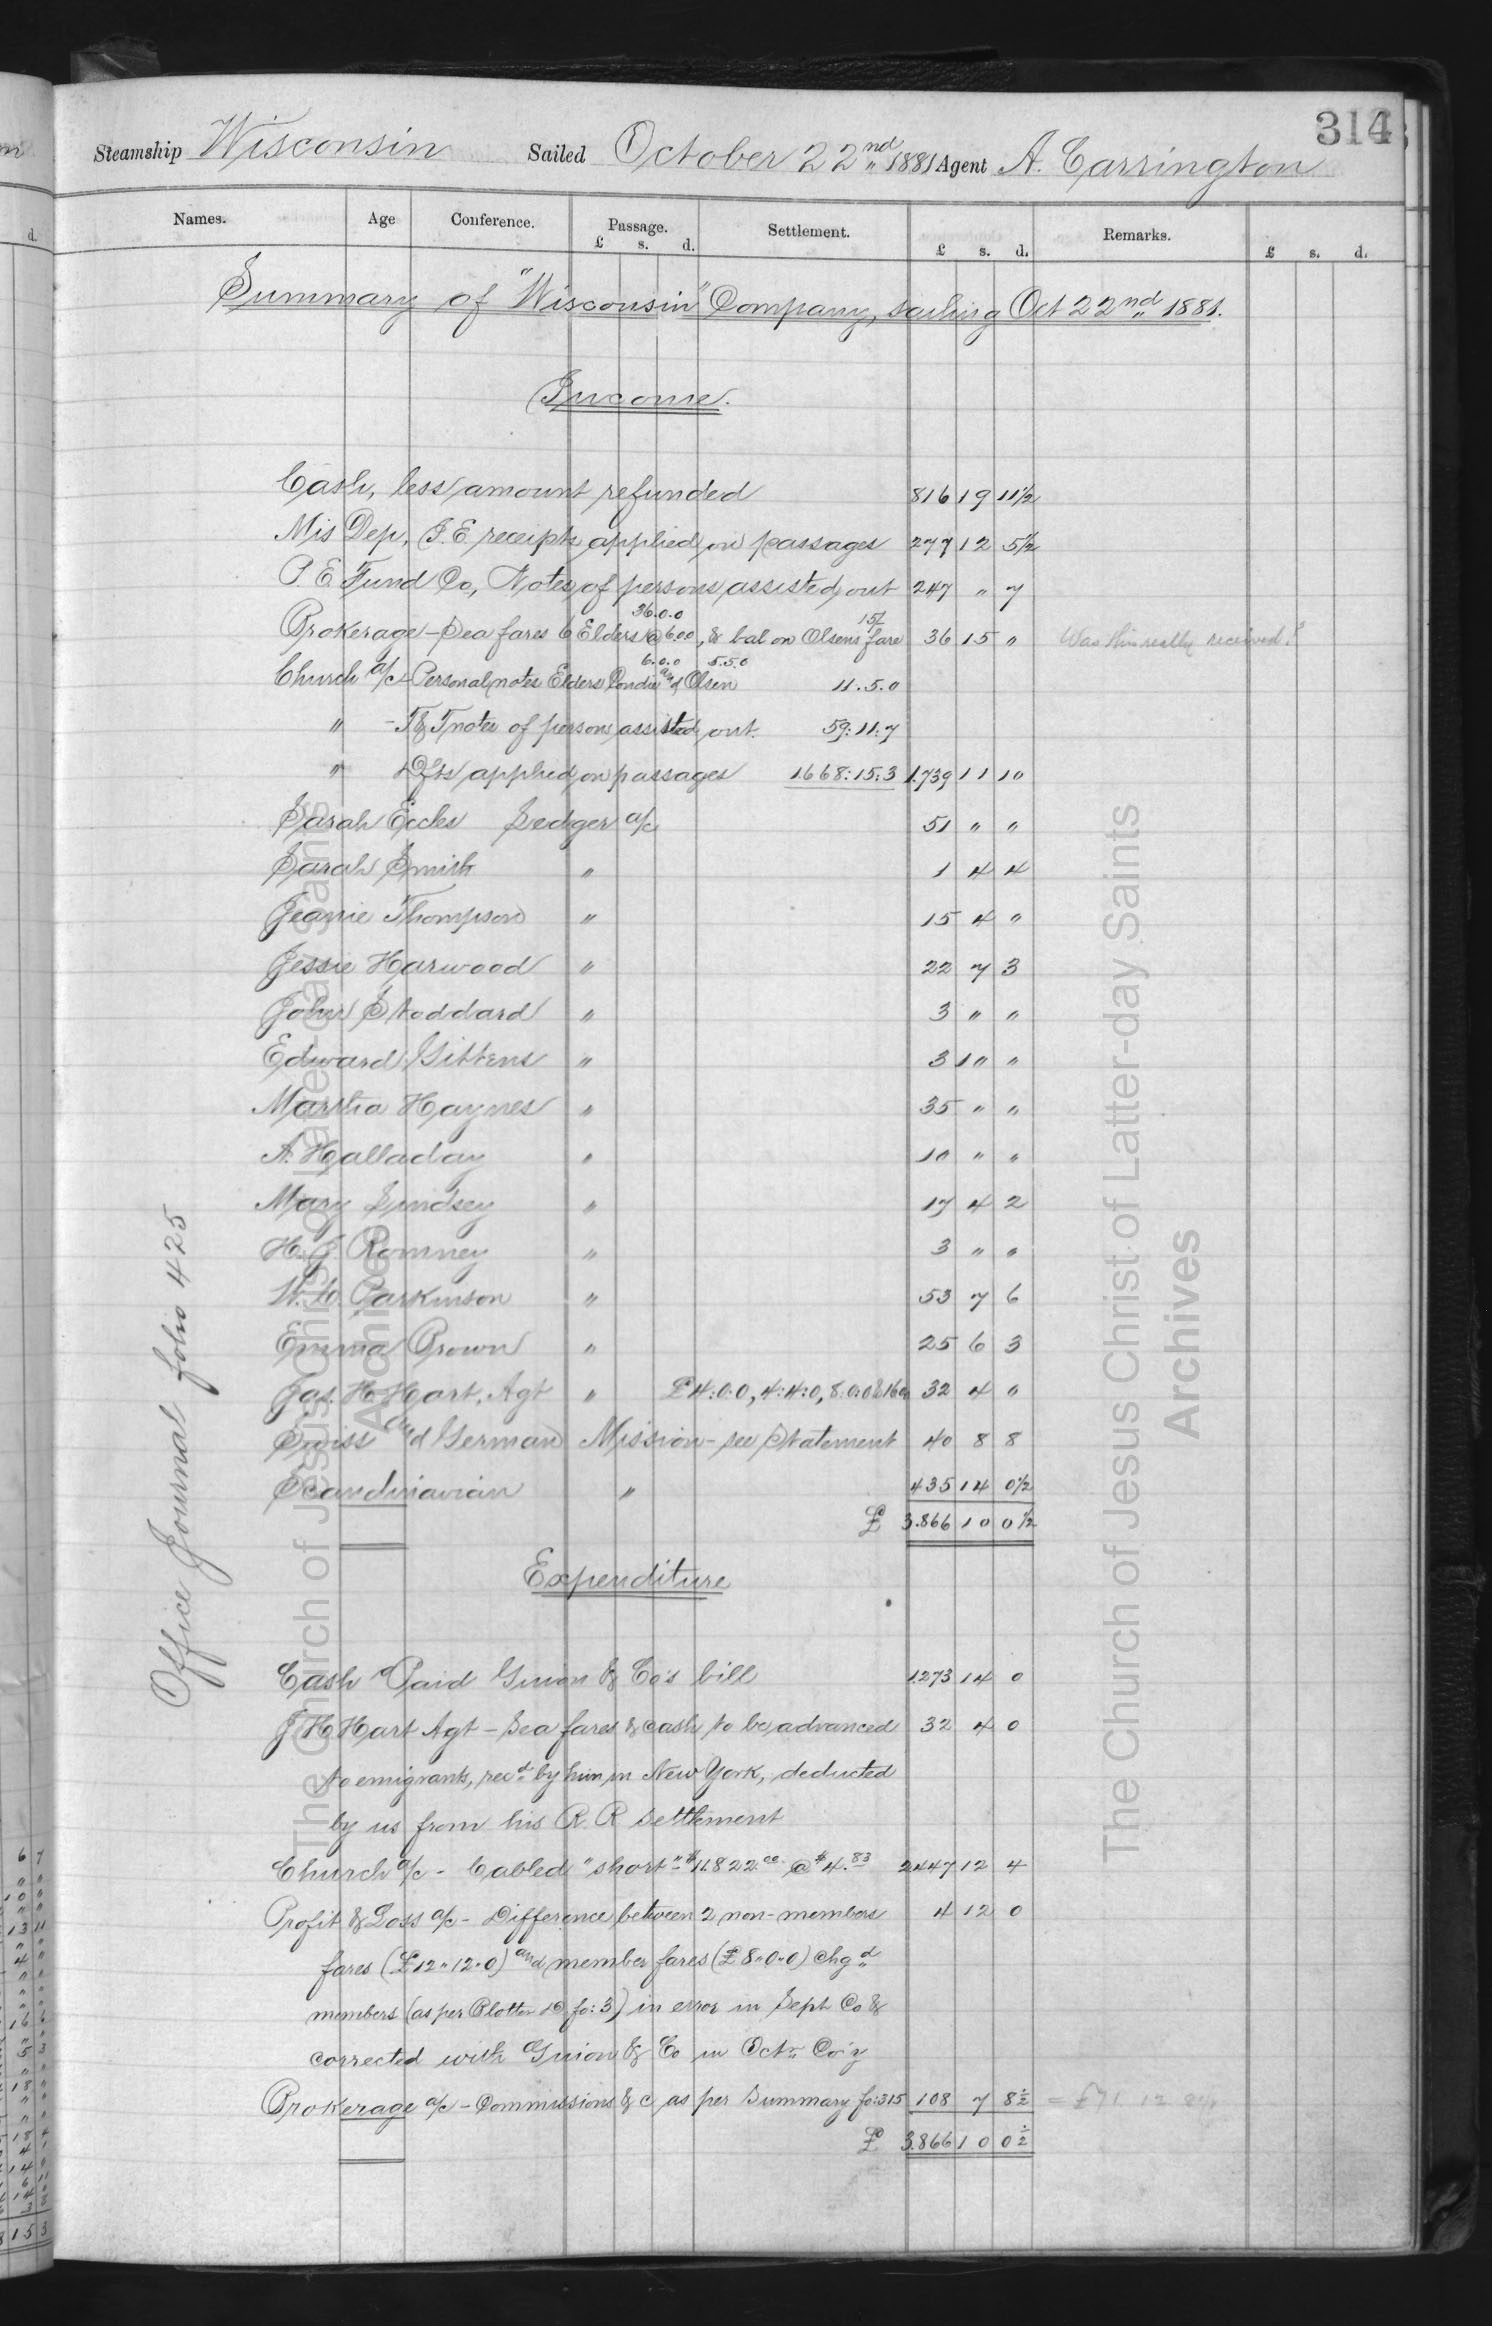 314
Steamship Wisconsin Sailed October 22nd 1881 Agent A. Carrington
Names. Age Conference. Passage. Settlement. Remarks.
£ s. d. £ s. d. £ s. d.
Summary of "Wisconsin" Company, sailing Oct 22nd 1881.
Income.
Cash, less amount refunded 816 19 11½
Mis Dep, I.E. receipts applied on passages 277 12 5½
P E Fund Co, Notes of persons assisted out 247 " 7
36.0.0 15/-
Brokerage - Sea fares 6 Elders @ 6.0.0, & bal on Olsens fare 36 15 " Was this really received?
6.0.0 5.5.0
Church a/c - Personal notes Elders Condie and Olsen 11.5.0
" - T&T notes of persons assisted out. 59:11:7
" Dfts applied on passages 1668:15:3 1.739 11 10
Sarah Eccles Ledger a/c 51 " "
Sarah Smith " 1 4 4
Jeanie Thompson " 15 4 "
Jessie Harwood " 22 7 3
John Stoddard " 3 " "
Edward Gittens " 3 10 "
Martha Haynes " 35 " "
A. Halladay " 10 " "
Mary Lindsey " 17 4 2
H. J. Romney " 3 " "
W. C. Parkinson " 53 7 6
Emma Brown " 25 6 3
Jas. H. Hart, Agt " £4:0:0, 4:4:0, 8:0:0 & 16 32 4 "
Swiss and German Mission - see Statement 40 8 8
Scandinavian " 435 14 0½
£ 3.866 10 0½
Expenditure
Cash Paid Guion & Co's bill 1273 14 0
J H Hart Agt - Sea fares & cash to be advanced 32 4 0
to emigrants, recd by him in New York, deducted
by us from his R. R settlement
Church a/c - Cabled "short" $11.822.00 @ $4.83 2447 12 4
Profit & Loss a/c - Difference between 2 non-members 4 12 0
fares (£12"12"0) and member fares (£8"0"0) chgd
members (as per Blotter D fo: 3) in error in Sept Co &
corrected with Guion & Co in Octr Co'y
Brokerage a/c - Commissions & c, as per Summary fo: 315 108 7 8½ = £71 12
£ 3.866 10 0½
Office Journal folio 425
The Church of Jesus Christ of Latter-day Saints
Archives
The Church of Jesus Christ of Latter-day Saints
Archives